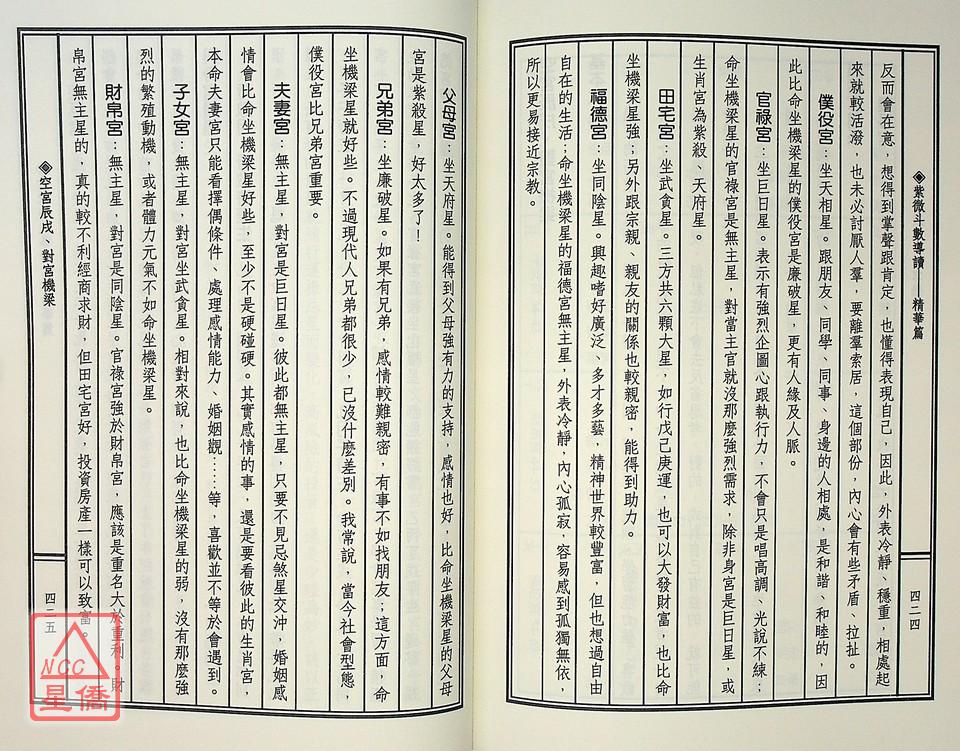 ◈紫微斗數導讀 精華篇
四二四
反而會在意，想得到掌聲跟肯定，也懂得表現自己，因此，外表冷靜、穩重，相處起
來就較活潑，也未必討厭人羣，要離羣索居，這個部份，內心會有些矛盾、拉扯。
僕役宮：坐天相星。跟朋友、同學、同事、身邊的人相處，是和諧、和睦的，因
此比命坐機梁星的僕役宮是廉破星，更有人緣及人脈。
官祿宮：坐巨日星。表示有強烈企圖心跟執行力，不會只是唱高調、光說不練；
命坐機梁星的官祿宮是無主星，對當主官就沒那麼強烈需求，除非身宮是巨日星，或
生肖宮為紫殺、天府星。
田宅宮：坐武貪星。三方共六顆大星，如行戊己庚運，也可以大發財富，也比命
坐機梁星強；另外跟宗親、親友的關係也較親密，能得到助力。
福德宮：坐同陰星。興趣嗜好廣泛、多才多藝，精神世界較豐富，但也想過自由
自在的生活；命坐機梁星的福德宮無主星，外表冷靜，內心孤寂，容易感到孤獨無依，
所以更易接近宗教。
父母宮：坐天府星。能得到父母強有力的支持，感情也好，比命坐機梁星的父母
宮是紫殺星，好太多了！
兄弟宮：坐廉破星。如果有兄弟，感情較難親密，有事不如找朋友；這方面，命
坐機梁星就好些。不過現代人兄弟都很少，已沒什麼差別。我常說，當今社會型態，
僕役宮比兄弟宮重要。
夫妻宮：無主星，對宮是巨日星。彼此都無主星，只要不見忌煞星交沖，婚姻感
情會比命坐機梁星好些，至少不是硬碰硬。其實感情的事，還是要看彼此的生肖宮，
本命夫妻宮只能看擇偶條件、處理感情能力、婚姻觀……等，喜歡並不等於會遇到。
子女宮：無主星，對宮坐武貪星。相對來說，也比命坐機梁星的弱，沒有那麼強
烈的繁殖動機，或者體力元氣不如命坐機梁星。
財帛宮：無主星，對宮是同陰星。官祿宮強於財帛宮，應該是重名大於重利。財
帛宮無主星的，真的較不利經商求財，但田宅宮好，投資房產一樣可以致富。
◈空宮辰戌、對宮機梁
四二五
NCC
星僑